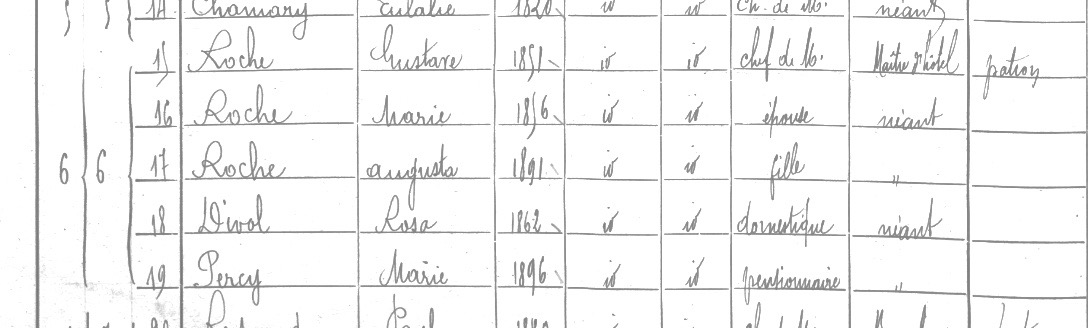 14 Chamary Eulalie 1820 id id Ch. de M. néant
15 Roche Gustave 1851 id id chef de M. Maître d'hôtel patron
16 Roche Marie 1856 id id épouse néant
6 6 17 Roche augusta 1891 id id fille "
18 Divol Rosa 1862 id id domestique néant
19 Percy Marie 1896 id id pentionnaire "